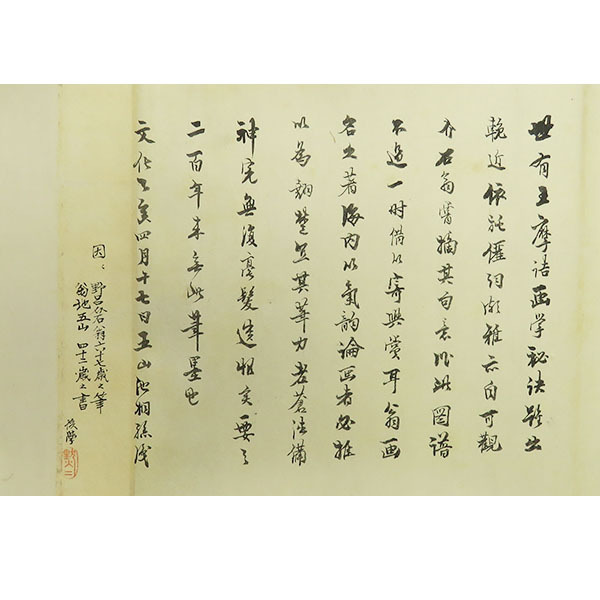 世有王摩詰画学秘訣雖出
輓近依託僅詞頗雅亦自可観
介石翁嘗摘其句意作此図譜
不過一時備以寄興賞耳翁画
名大著海内以気韵論画者必推
以為翹楚豆其筆力老蒼法備
神完無復毫髪遺恨実要之
二百年来無此筆墨也
文化乙亥四月十七日五山池桐孫識
因ミ野呂翁六十七歳之筆
翁地五山四十二歳之書